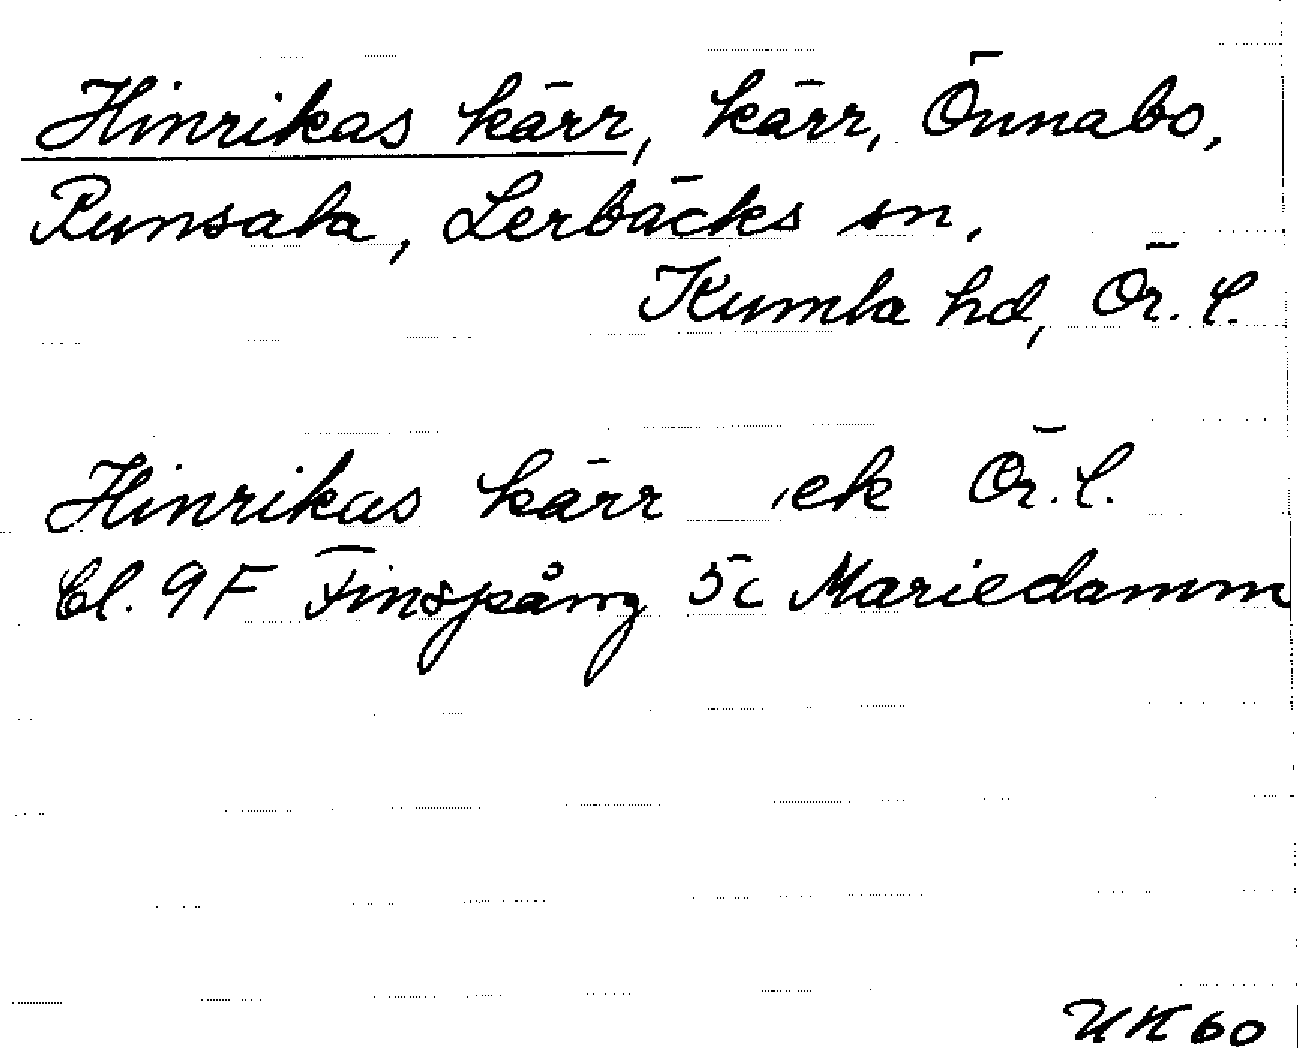 Hinrikas kärr, kärr, Önnabo,
Runsala, Lerbäcks sn,
Kumla hd, Ör. l.
Hinrikas kärr ek Ör. l.
Bl. 9F Finspång 5c Mariedamm
UK 60